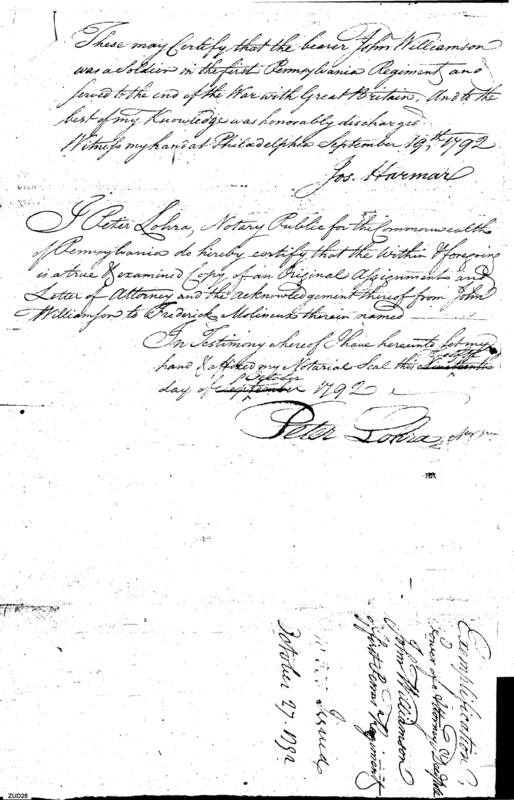 These may Certify that the bearer John Williamson
was a Soldier in the first Pennsylvania Regiment, and
served to the end of the War with Great Britain, And to the
best of my Knowledge was honorably discharged
Witness my hand at Philadelphia September 19th 1792
Jos. Harmar
I Peter Lohra, Notary Public for the Commonwealth
of Pennsylvania do hereby certify that the within & foregoing
is a true & examined Copy of an Original Assignment and
Letter of Attorney and the acknowledgement thereof from John
Williamson to Frederick Molineux therein named
In Testimony whereof I have hereunto Set my
hand & affixed my Notarial Seal this Nineteenth twelfth
day of September October 1792
Peter Lohra
Exemplification,
Power of Attorney
John Williamson
of first Penns Regiment
October 27. 1792
ZUD26